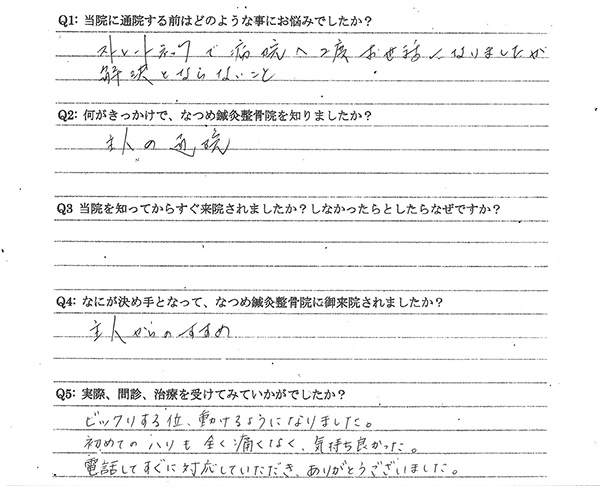 Q1: 当院に通院する前はどのような事にお悩みでしたか？
ストレートネックで病院へ2度お世話になりましたが
解決とならないこと
Q2: 何がきっかけで、なつめ鍼灸整骨院を知りましたか？
主人の通院
Q3 当院を知ってからすぐ来院されましたか？しなかったらとしたらなぜですか？
Q4: なにが決め手となって、なつめ鍼灸整骨院に御来院されましたか？
主人からのすすめ
Q5: 実際、問診、治療を受けてみていかがでしたか？
ビックリする位、動けるようになりました。
初めてのハリも全く痛くなく、気持ち良かった。
電話してすぐに対応していただき、ありがとうございました。